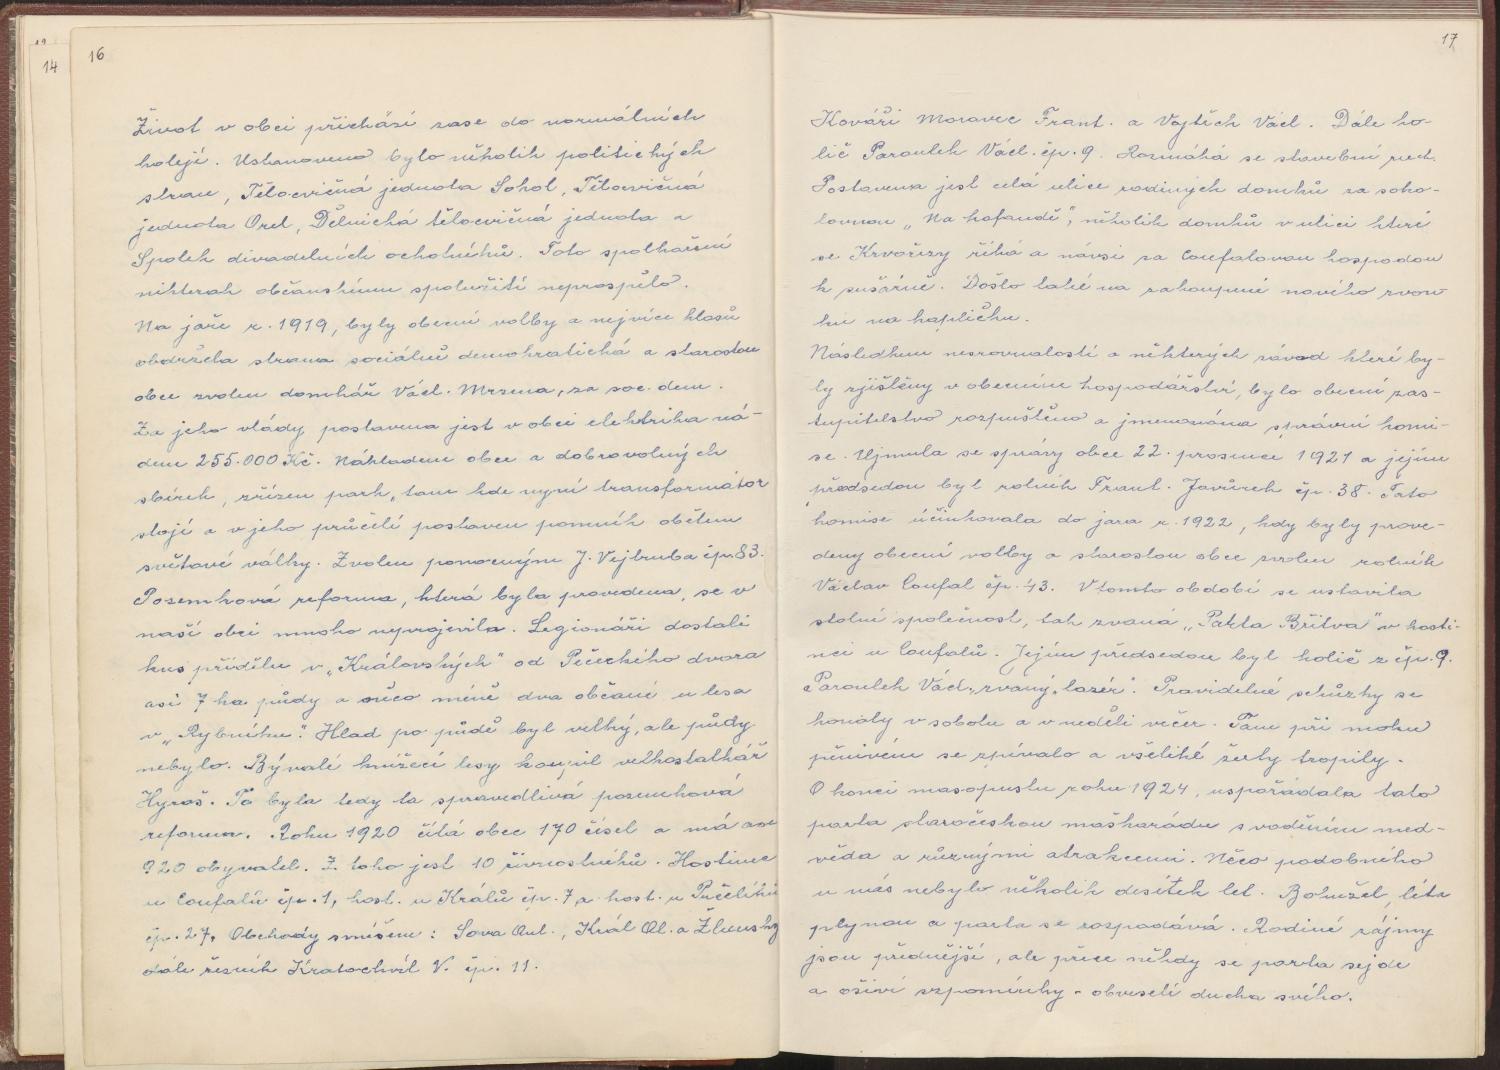 14
16
Život v obci přichází zase do normálních
kolejí. Ustanoveno bylo několik politických
stran, Tělocvičná jednota Sokol, Tělocvičná
jednota Orel, Dělnická tělocvičná jednota a
Spolek divadelních ochotníků. Toto spolkaření
nikterak občanskému spolužití neprospělo.
Na jaře r. 1919, byly obecní volby a nejvíce hlasů
obdržela strana sociálně demokratická a starostou
obce zvolen domkář Václ. Mrzena, za soc. dem.
Za jeho vlády postavena jest v obci elektrika ná-
dem 255.000 Kč. Nákladem obce a dobrovolných
sbírek, zřízen park, tam kde nyní transformátor
stojí a v jeho průčelí postaven pomník obětem
světové války. Zvolen ponocným J. Vejtruba čp. 83.
Pozemková reforma, která byla provedena, se v
naší obci mnoho neprojevila. Legionáři dostali
kus přídělu v „Královských" od Pečeckého dvora
asi 7 ha půdy a něco méně dva občané u lesa
v „Rybníku". Hlad po půdě byl velký, ale půdy
nebylo. Bývalé knížecí lesy koupil velkostatkář
Hyroš. To byla tedy ta spravedlivá pozemková
reforma. Roku 1920 čítá obec 170 čísel a má asi
920 obyvatel. Z toho jest 10 živnostníků. Hostinec
u Coufalů čp. 1, host. u Králů čp. 7, a host. u
čp. 27, Obchody smíšen: Sova Ant., Král Al. a
dále řezník Kratochvíl V. čp. 11.
17
Kováři Moravec Frant. a Vojtěch Václ. Dále ho-
lič Paroulek Václ. čp. 9. Rozmáhá se stavební ruch.
Postavena jest celá ulice rodiných domků za soko-
lovnou „Na kofandě", několik domků v ulici které
se Krvořizy říká a návsi za Coufalovou hospodou
k sušárně. Došlo také na zakoupení nového zvon-
ku na kapličku.
Následkem nesrovnalostí a některých závad které by-
ly zjištěny v obecním hospodářství, bylo obecní zas-
tupitelstvo rozpuštěno a jmenována správní komi-
se. Ujmula se správy obce 22. prosince 1921 a jejím
předsedou byl rolník Frant. Javůrek čp. 38. Tato
komise účinkovala do jara r. 1922, kdy byly prove-
deny obecní volby a starostou obce zvolen rolník
Václav Coufal čp. 43. V tomto období se ustavila
stolní společnost, tak zvaná „Parta Břitva" v hosti-
nci u Coufalů. Jejím předsedou byl holič z čp. 9.
Paroulek Václ. zvaný „lazér". Pravidelné schůzky se
konaly v sobotu a v neděli večer. Tam při moku
pěnivém se zpívalo a všeliké žerty tropily.
O konci masopustu roku 1924, uspořádala tato
parta staročeskou maškarádu s voděním med-
věda a různými atrakcemi. Něco podobného
u nás nebylo několik desítek let. Bohužel, léta
plynou a parta se rozpadává. Rodiné zájmy
jsou přednější, ale přece někdy se parta sejde
a oživí vzpomínky - obveselí ducha svého.